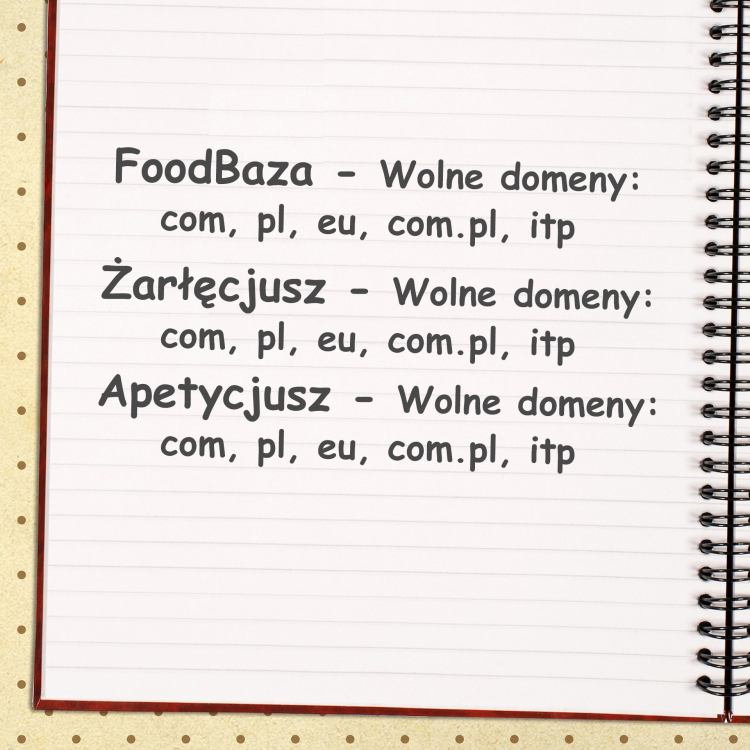 FoodBaza - Wolne domeny:
com, pl, eu, com.pl, itp
Żarłęcjusz - Wolne domeny:
com, pl, eu, com.pl, itp
Apetycjusz - Wolne domeny:
com, pl, eu, com.pl, itp